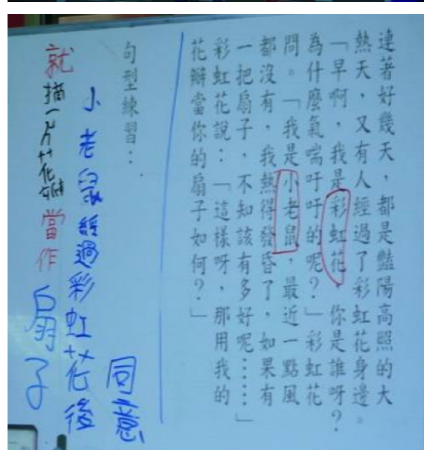 連著好幾天，都是豔陽高照的大
熱天，又有人經過了彩虹花身邊。
「早啊，我是彩虹花，你是誰呀？
為什麼氣喘吁吁的呢？」彩虹花
問。「我是小老鼠，最近一點風
都沒有，我熱得發昏了，如果有
一把扇子，不知該有多好呢……」
彩虹花說：「這樣呀，那用我的
花瓣當你的扇子如何？」
句型練習：
小老鼠經過彩虹花後
同意
就摘一片花瓣當作扇子